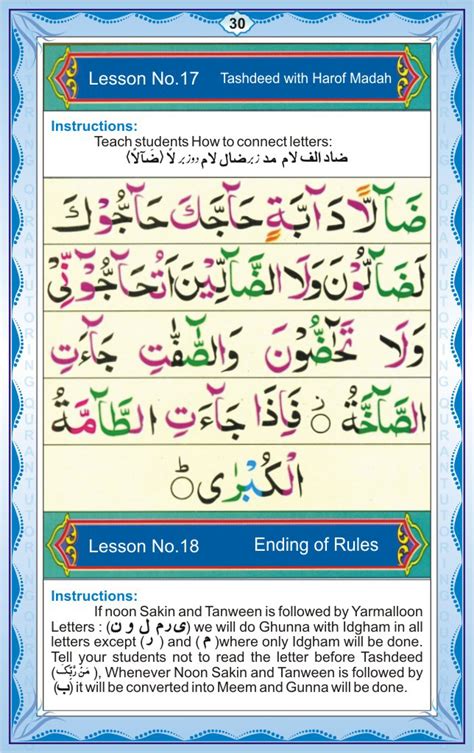 30
Lesson No.17 Tashdeed with Harof Madah
Instructions:
Teach students How to connect letters:
ضاد الف لام مد زبر ضال لام دوزبر لاً (ضَآلاًّ)
ضَآلًّا دَآبَّةٍ حَآجَّكَ حَآجُّوْكَ
لَضَآلُّوْنَ وَلَا الضَّآلِّيْنَ اَتُحَآجُّوْٓنِّيْ
وَلَا تَحٰٓضُّوْنَ وَالصّٰٓفّٰتِ جَآءَتِ
الصَّآخَّةُ ۝ فَاِذَا جَآءَتِ الطَّآمَّةُ
الْكُبْرٰى ۝ؕ
Lesson No.18 Ending of Rules
Instructions:
If noon Sakin and Tanween is followed by Yarmalloon
Letters : (ی ر م ل و ن) we will do Ghunna with Idgham in all
letters except (ر) and (م)where only Idgham will be done.
Tell your students not to read the letter before Tashdeed
(مَنْ رَّبُّكَ), Whenever Noon Sakin and Tanween is followed by
(ب) it will be converted into Meem and Gunna will be done.
QURAN TUTORING
QURAN TUTORING